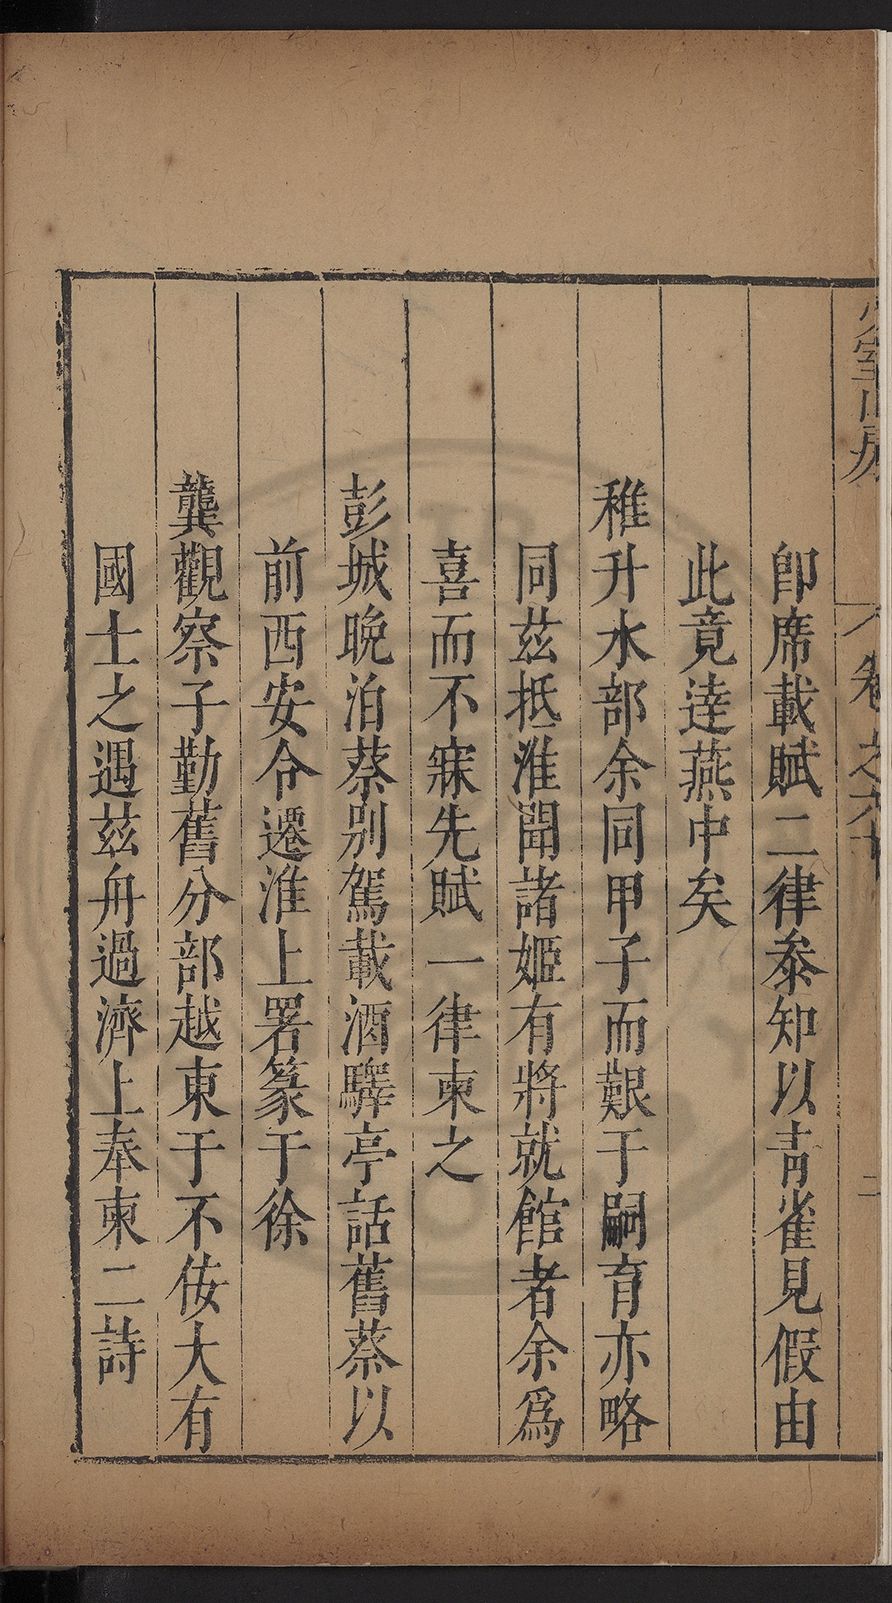 少室山房
卷之六十
二
卽席載賦二律叅知以靑雀見假由
此竟達燕中矣
稚升水部余同甲子而艱于嗣育亦略
同茲抵淮聞諸姬有將就館者余爲
喜而不寐先賦一律柬之
彭城晚泊蔡别駕載酒驛亭話舊蔡以
前西安令遷淮上署篆于徐
龔觀察子勤舊分部越東于不佞大有
國士之遇茲舟過濟上奉柬二詩